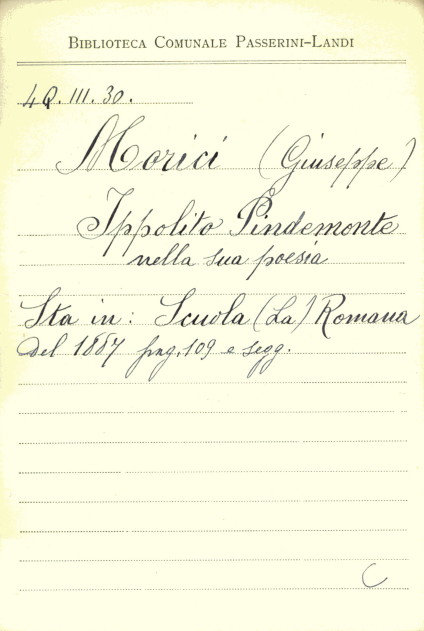 Biblioteca Comunale Passerini-Landi
4Q.III.30.
Morici (Giuseppe)
Ippolito Pindemonte
nella sua poesia
Sta in: Scuola (La) Romana
del 1887 pag. 109 e segg.
C